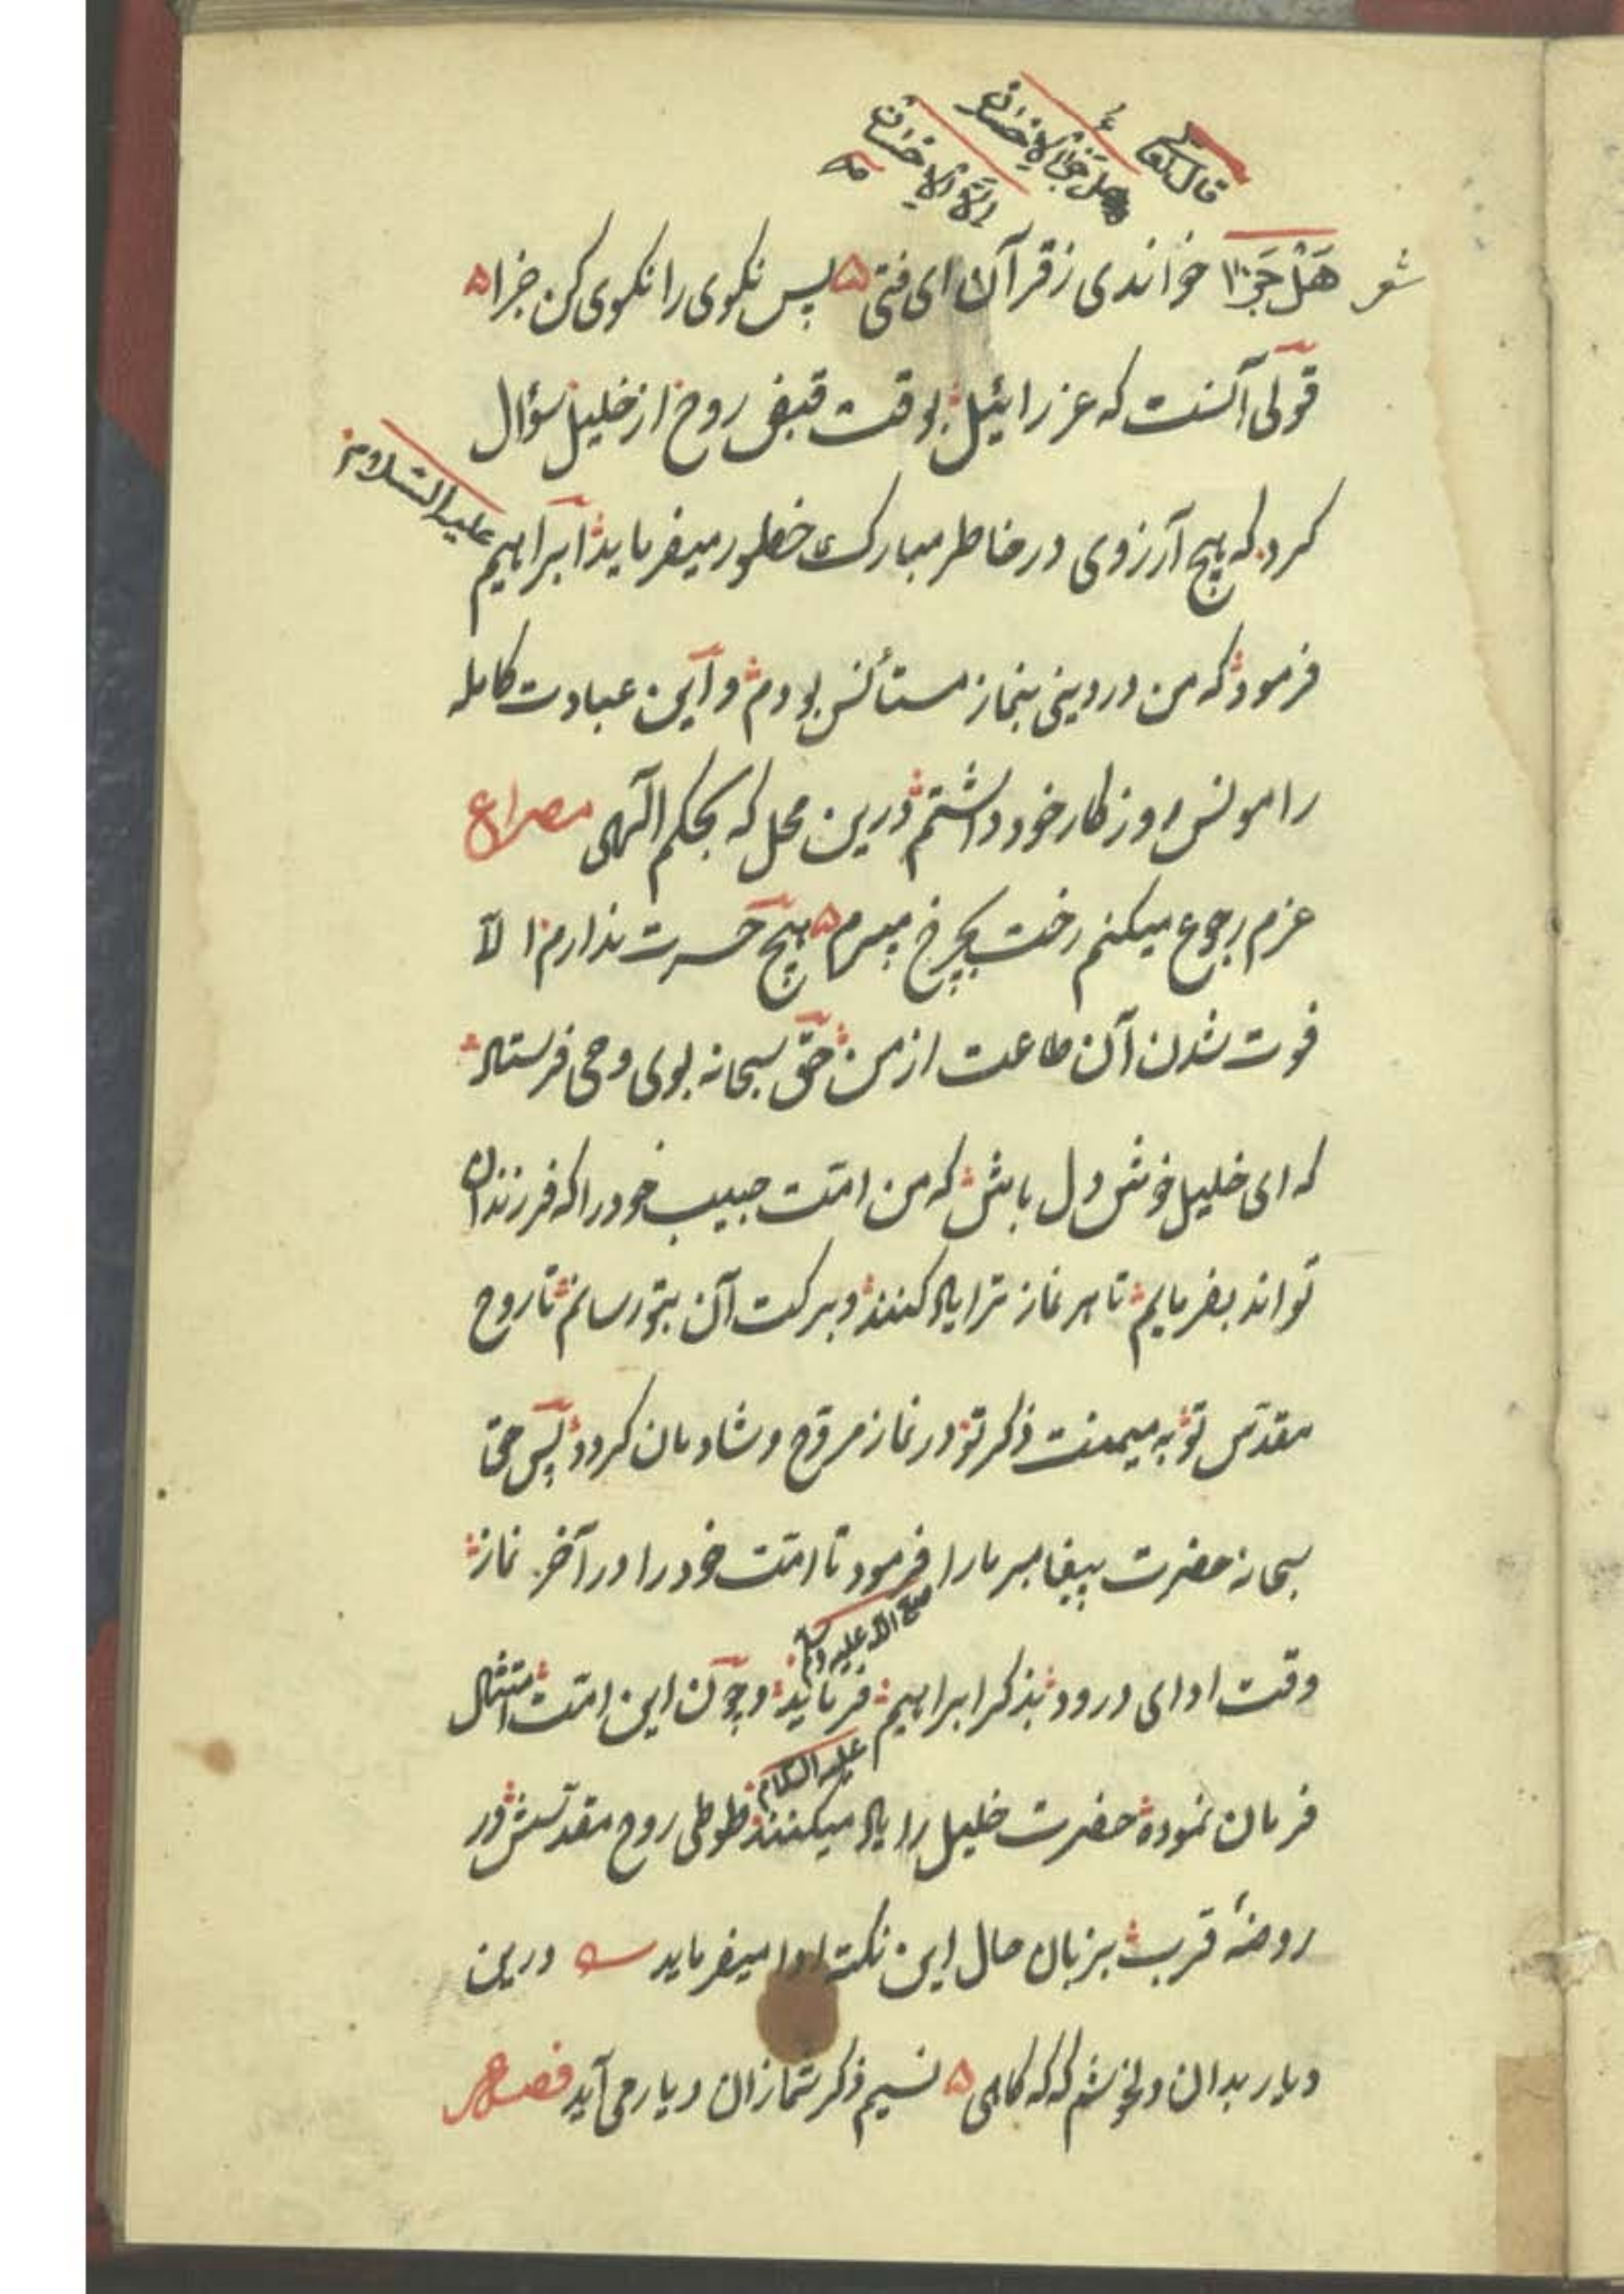 قال الله تعالی
هل جزاء الاحسان
الا الاحسان
شعر
هَلْ جَزَا خواندی ز قرآن ای فتی ه پس نکوی را نکوی کن جزا ه
قولی آنست که عزرائیل بوقت قبض روح از خلیل سؤال
کرد که هیچ آرزوی در خاطر مبارک خطور میفرماید ابراهیم علیه السلام
فرمود که من در دینی بنماز مستأنس بودم و این عبادت کامله
را مونس روزکار خود داشتم درین محل که بحکم الهی مصراع
عزم رجوع میکنم رخت بچرخ میبرم ه هیچ حسرت ندارم الّا
فوت شدن آن طاعت از من حق سبحانه بوی وحی فرستاد
که ای خلیل خوش دل باش که من امّت حبیب خود را که فرزندان
تواند بفرمایم تا هر نماز ترا یاد کنند و برکت آن بتو رسانم تا روح
مقدّس تو به میمنت ذکر تو در نماز مروّح و شادمان کردد پس حق
سبحانه حضرت پیغامبر ما را فرمود تا امّت خود را در آخر نماز
صلی الله علیه وسلم
وقت ادای درود بذکر ابراهیم فرماید و چون این امّت امتثال
علیه السلام
فرمان نموده حضرت خلیل را یاد میکنند طوطی روح مقدّسش در
روضهٔ قرب بزبان حال این نکته ادا میفرماید درین
دیار بدان دلخوشم که که کاهی ه نسیم ذکر شما زان دیار می آید فصل